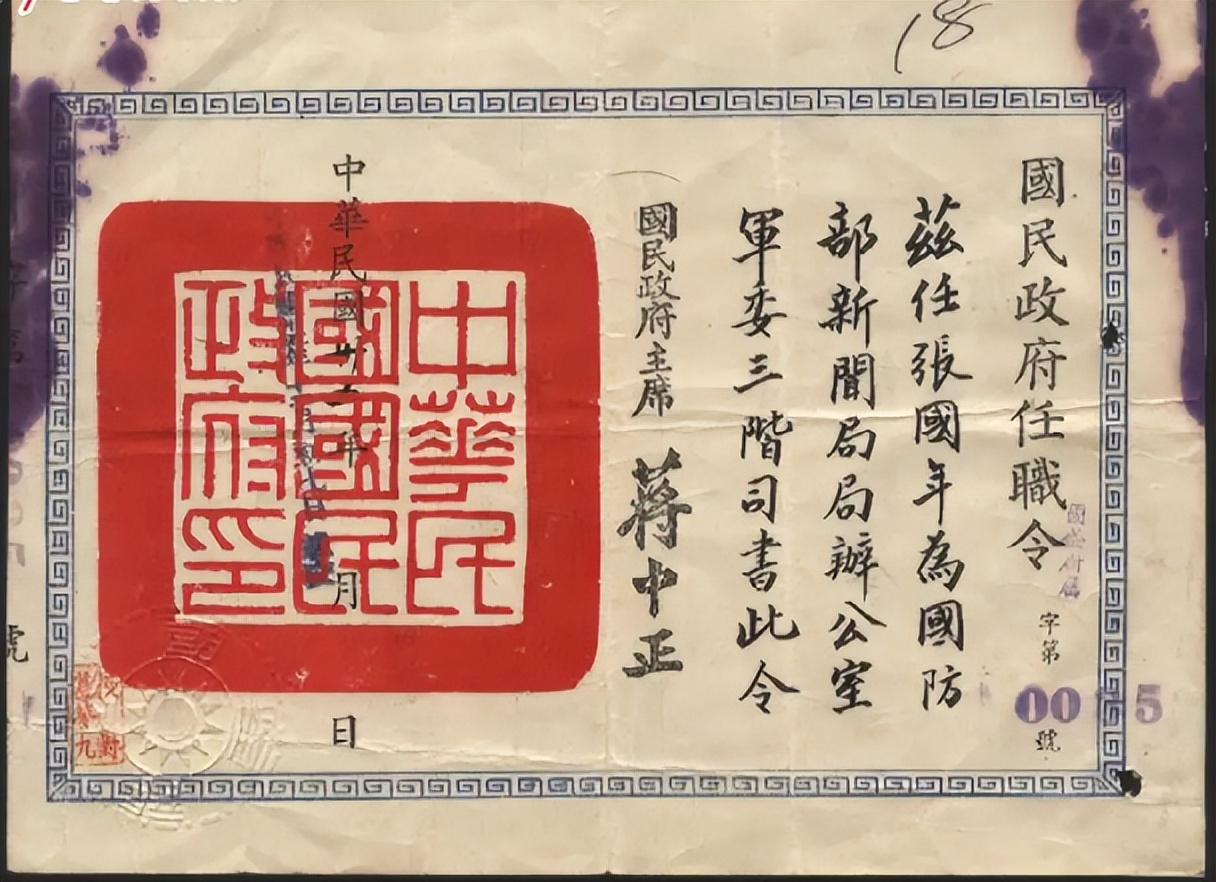 18
國民政府任職令
字第
00 5
號
茲任張國年為國防
部新聞局局辦公室
軍委三階司書此令
國民政府主席 蔣中正
中華民國卅 年 月 日
中華民
國國民
政府印
號